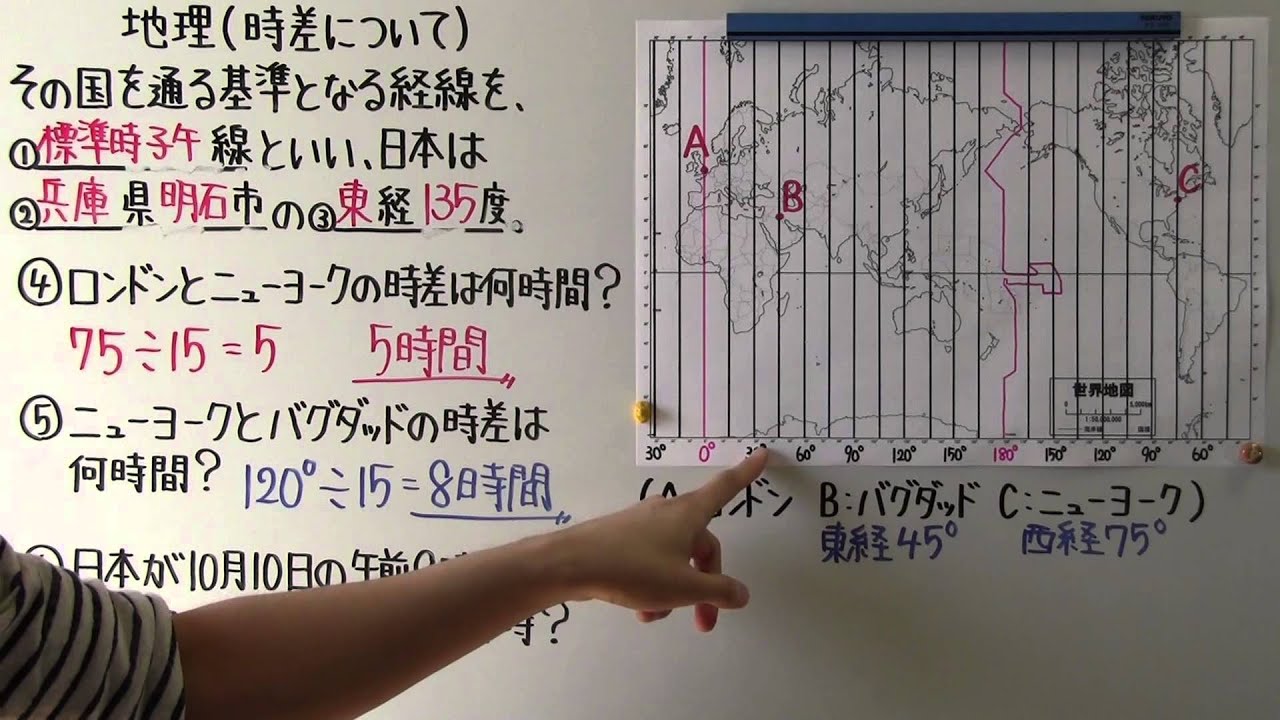 地理(時差について)
その国を通る基準となる経線を、
①標準時子午線といい、日本は
②兵庫県明石市の③東経135度。
④ロンドンとニューヨークの時差は何時間?
75÷15=5 5時間
⑤ニューヨークとバグダッドの時差は
何時間? 120°÷15=8時間
日本が10月10日の午前
時?
KOKUYO
A
B
C
世界地図
5,000km
1:50,000,000
30° 0° 60° 90° 120° 150° 180° 150° 120° 90° 60°
ンドン B:バグダッド C:ニューヨーク)
東経45° 西経75°